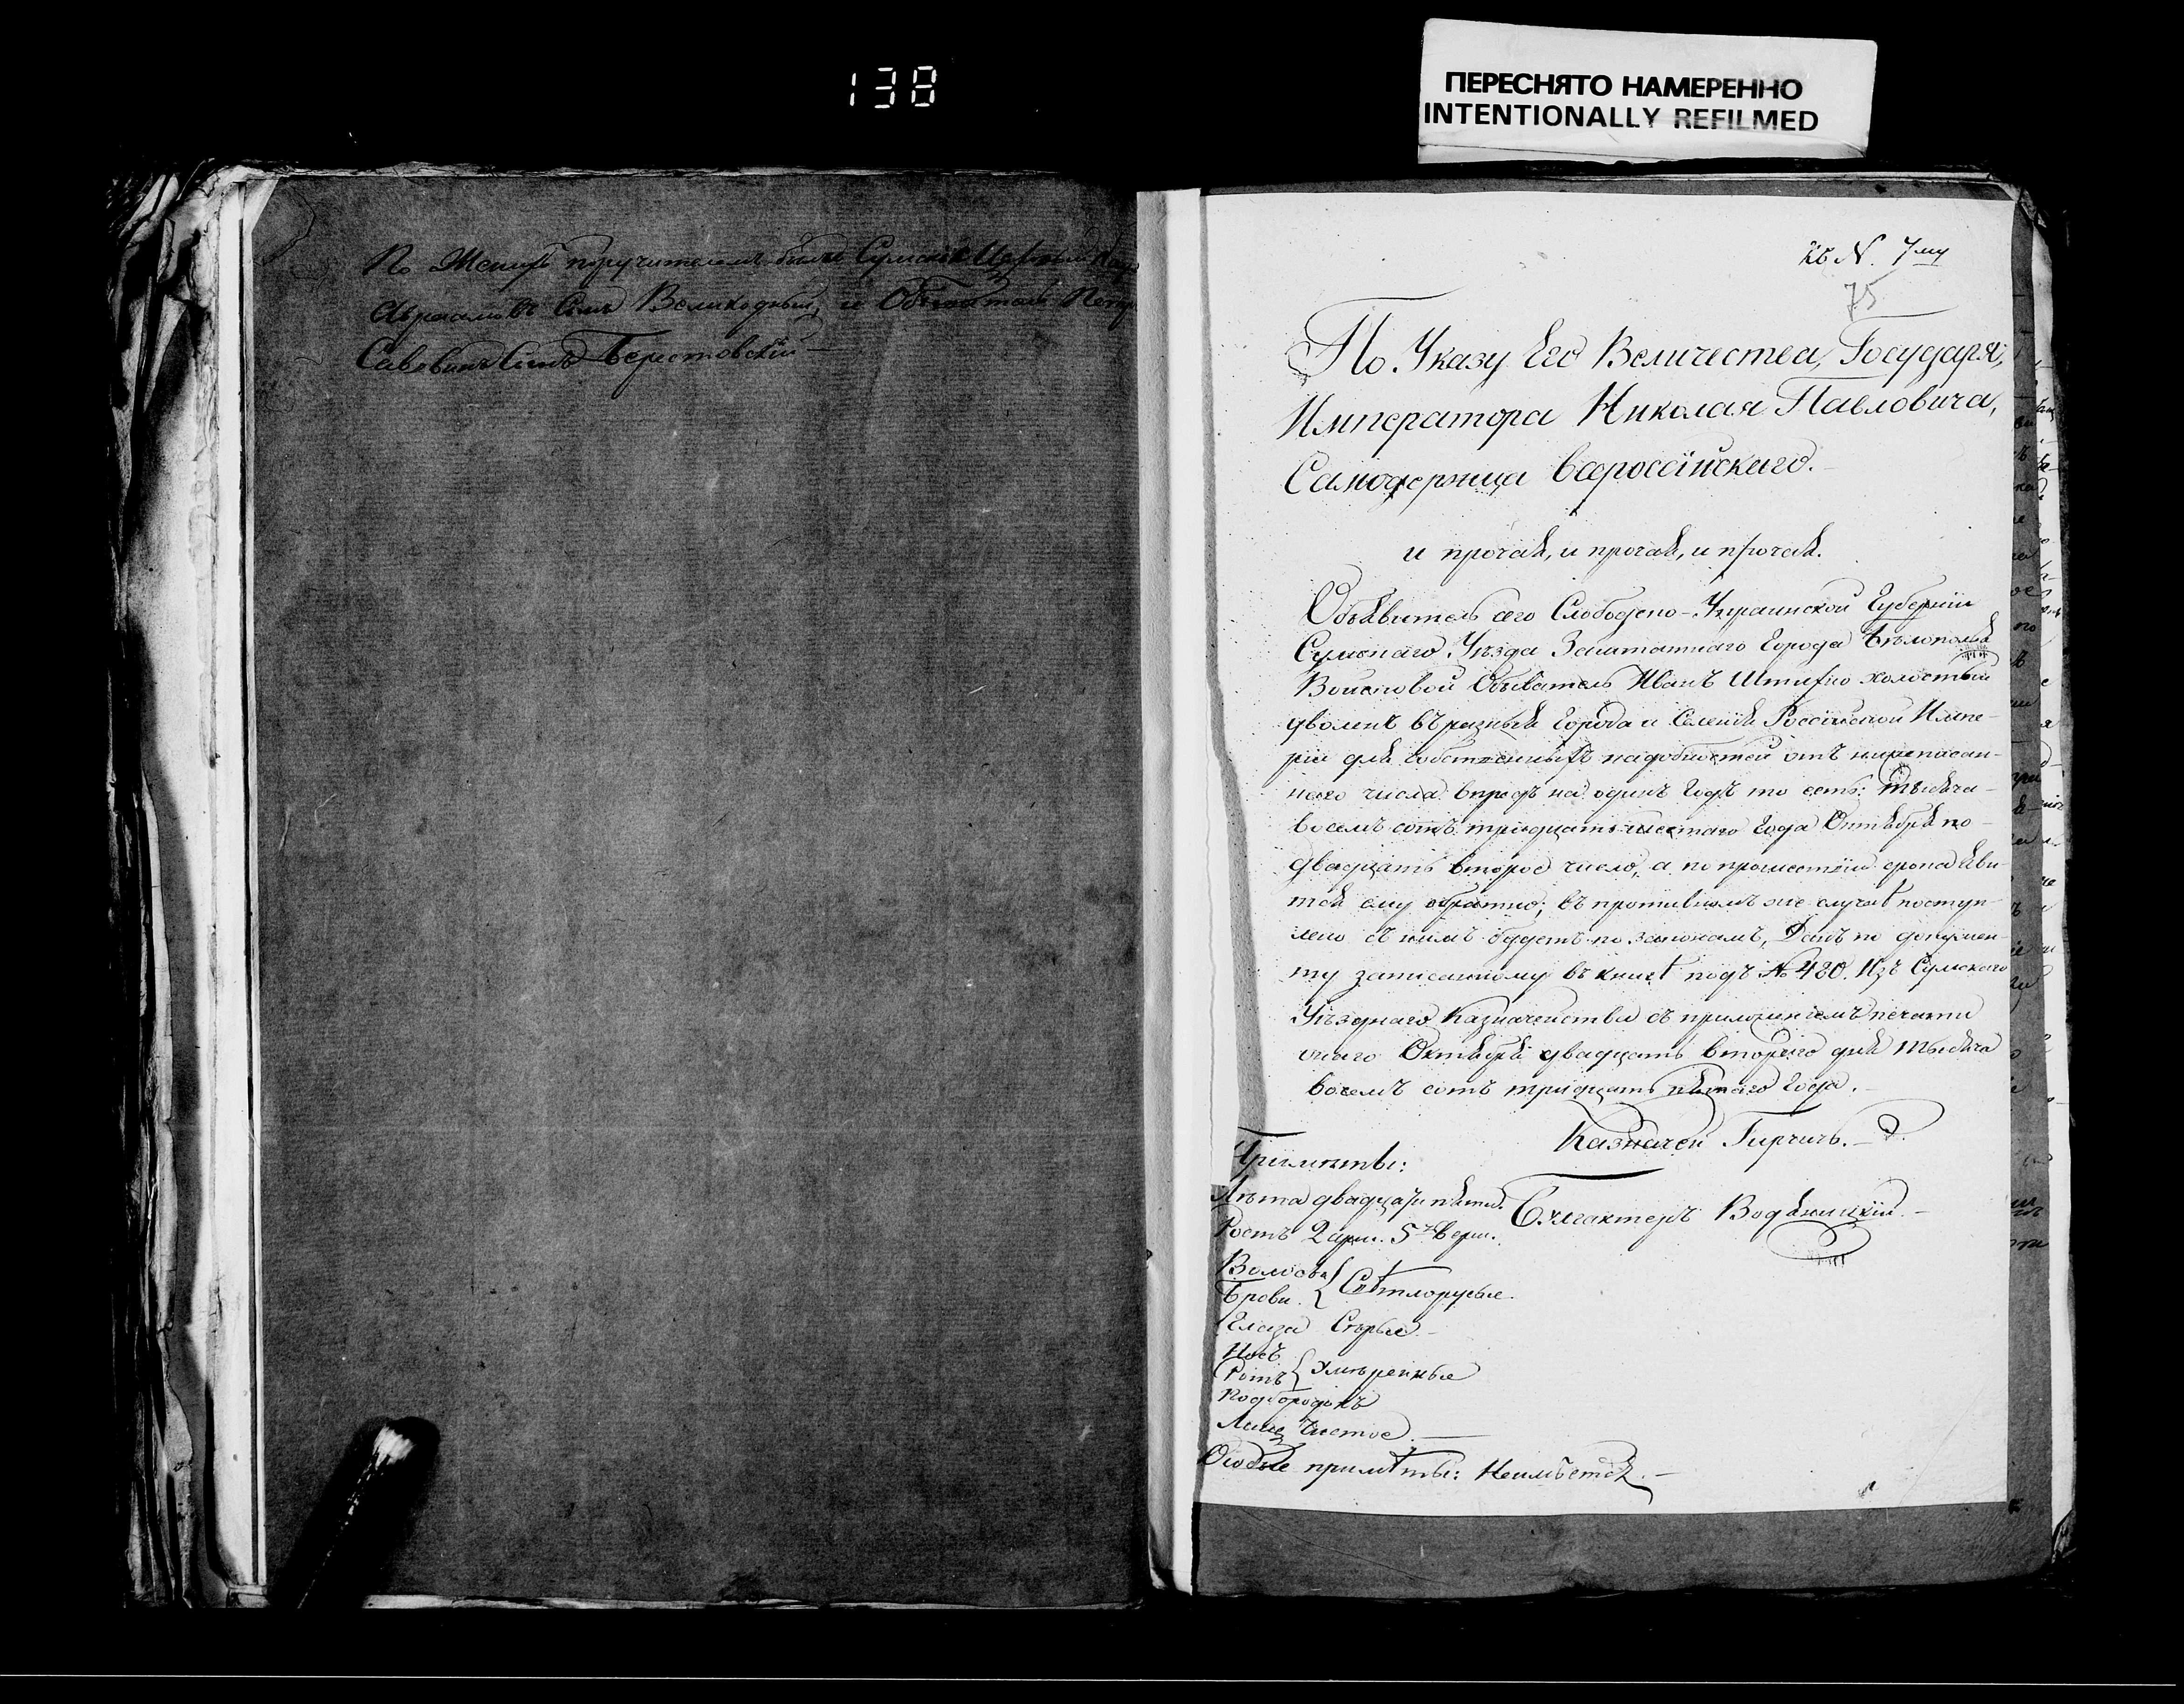 138
ПЕРЕСНЯТО НАМЕРЕННО
INTENTIONALLY REFILMED
По Женихѣ поручителемъ были Сумскіе
Сынъ Великодный, и Обыватель Петръ
Саввинъ Сынъ Берестовскій
къ N. 7му
75
По Указу Его Величества, Государя,
Императора Николая Павловича,
Самодержца всероссійскаго.
и прочая, и прочая, и прочая.
Объявитель сего Слободско-Украинской Губерніи
Сумскаго Уѣзда Заштатнаго города Бѣлополья
Войсковой Обыватель Иванъ холостый
уволенъ въ разныя города и Селенія Россійской Импе-
ріи для собственныхъ надобностей отъ нижеписан-
наго числа впредь на одинъ годъ то есть: тысяча-
восемъ сотъ тридцать шестаго года Октября по-
двадцать второе число, а по прошествіи срока яви-
тся ему обратно; въ противномъ же случаѣ поступ-
лено съ нимъ будетъ по законамъ, Данъ по докумен-
ту записанному въ книгѣ подъ № 480. Изъ Сумскаго
Уѣзднаго Казначейства съ приложеніемъ печати
онаго Октября двадцать втораго дня тысяча
восемъ сотъ тридцать пятаго года.
Казначей
Примѣты:
Лѣта двадцати пяти.
Бухгалтеръ Водяницкій
Ростъ 2 арш. 5 верш.
Волосы
Брови. Свѣтлорусые.
Глаза Сѣрые
Носъ
Ротъ Умѣренные
Подбородокъ
Лице Чистое
Особые примѣты: Неимѣется.